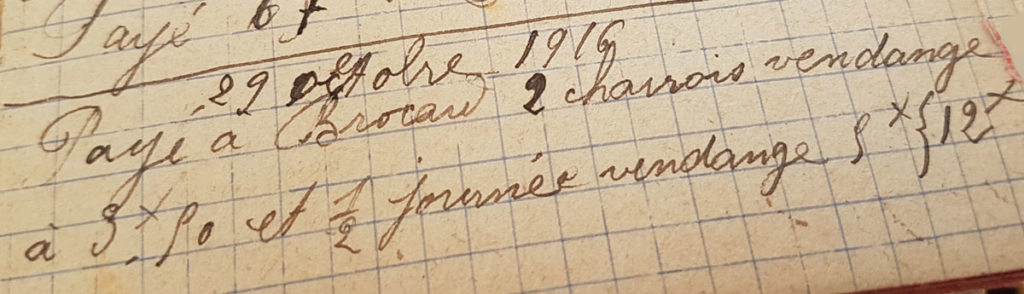 Payé
29 octobre 1916
Payé à Brocard 2 charrois vendange
à 3 x 50 et 1/2 journée vendange 5 x { 12 x